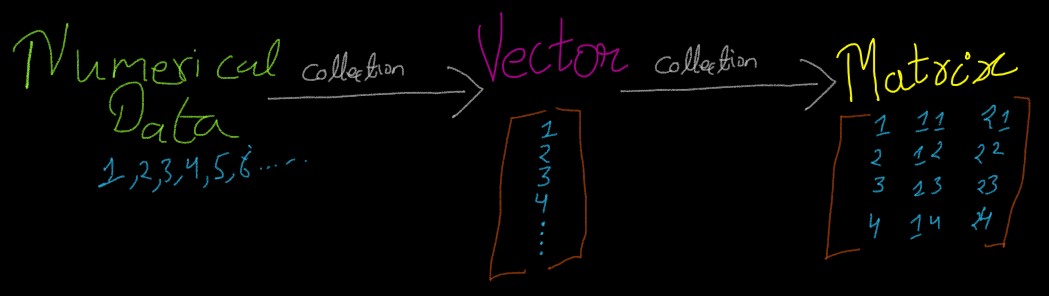 Numerical
Data
1,2,3,4,5,6.....
collection
Vector
1
2
3
4
collection
Matrix
1 11 21
2 12 22
3 13 23
4 14 24